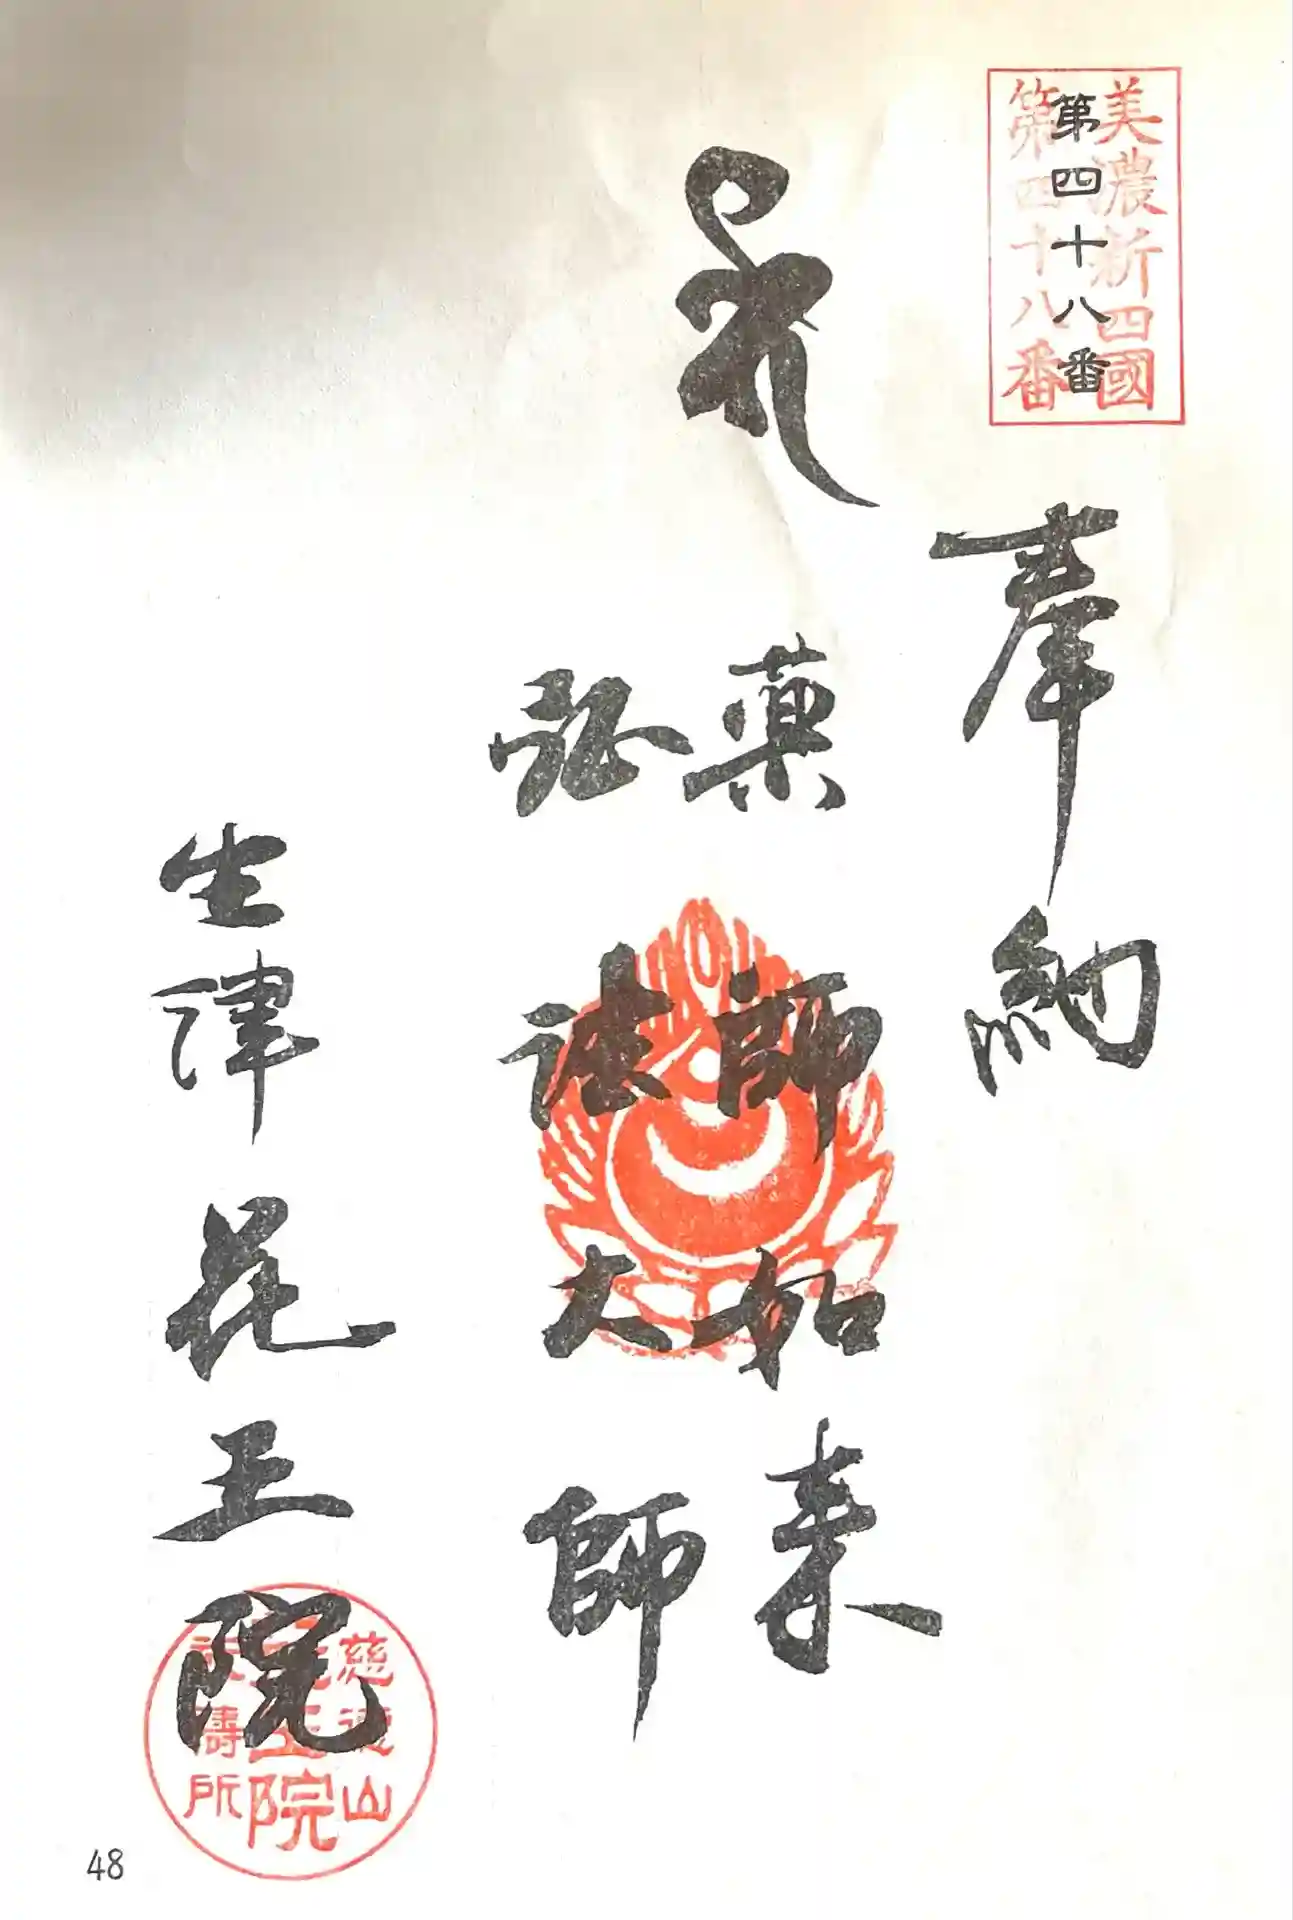 美濃新四國
第四十八番
第四十八番
奉納
薬師如来
弘法大師
生津 花王院
慈
山
花王院
祷所
48